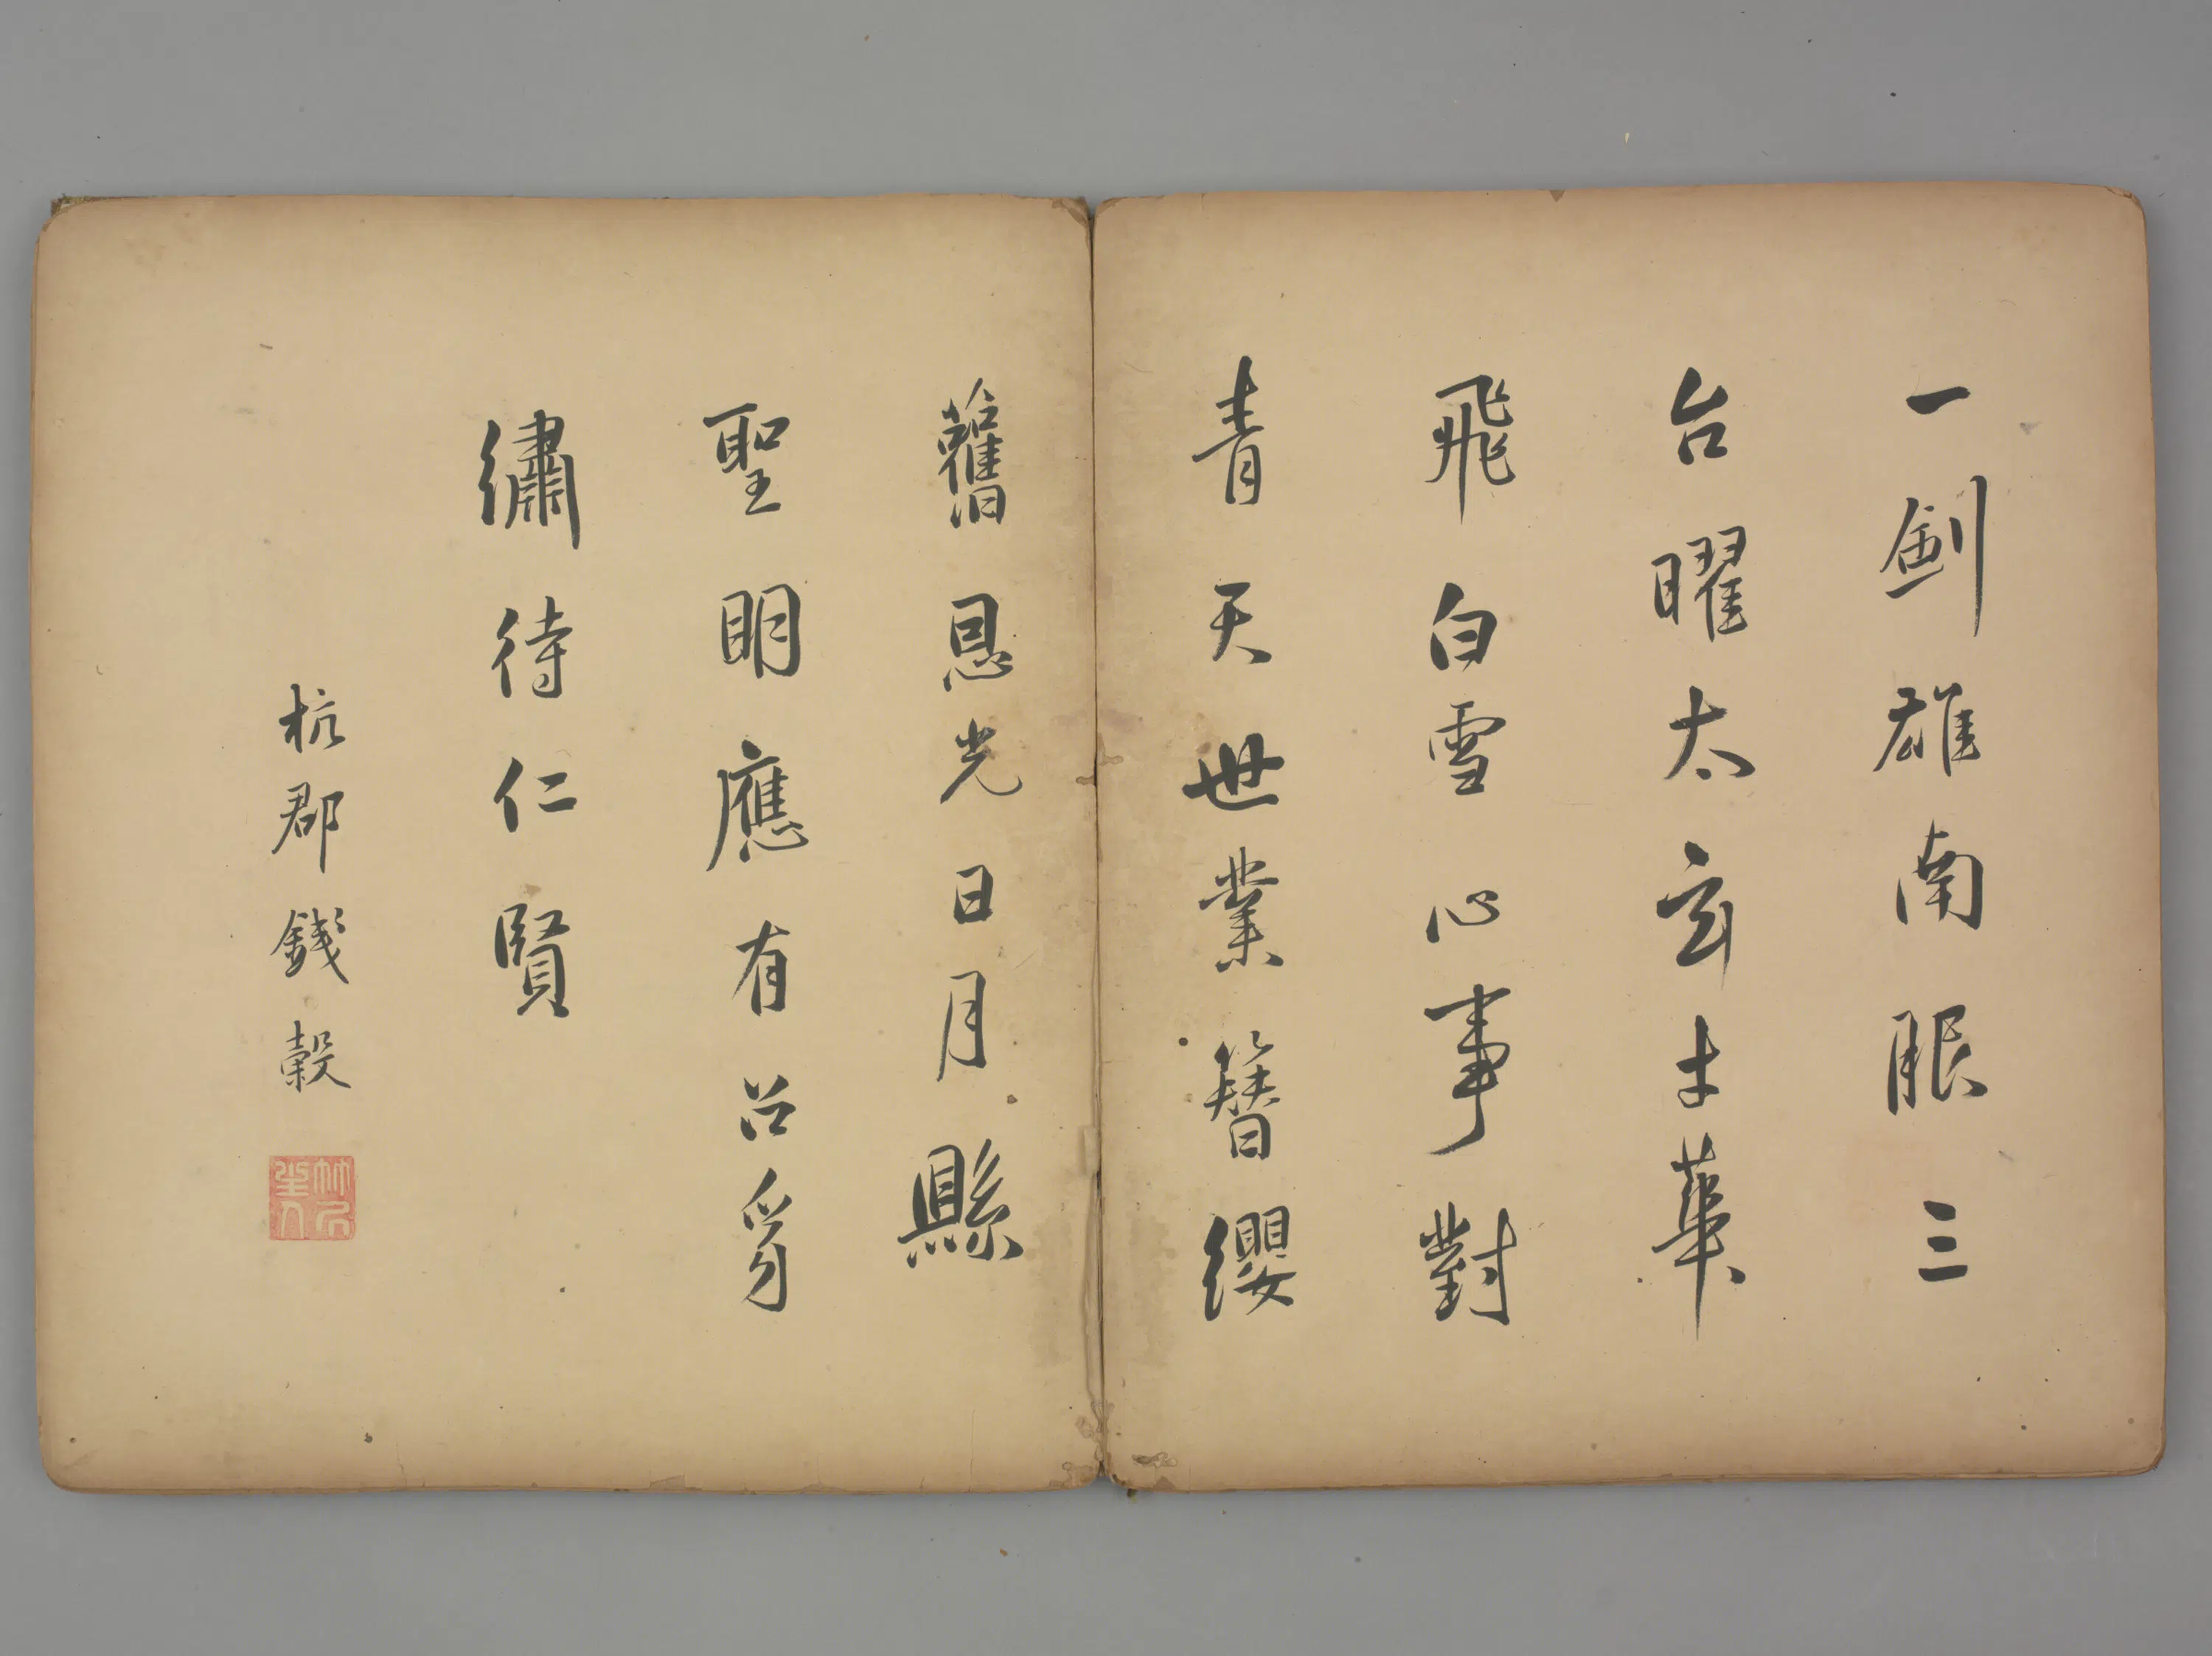 一劍雄南服三
台曜太玄才華
飛白雪心事對
青天世業簪纓
舊恩光日月縣
聖明應有召豸
繡待仁賢
杭郡錢穀